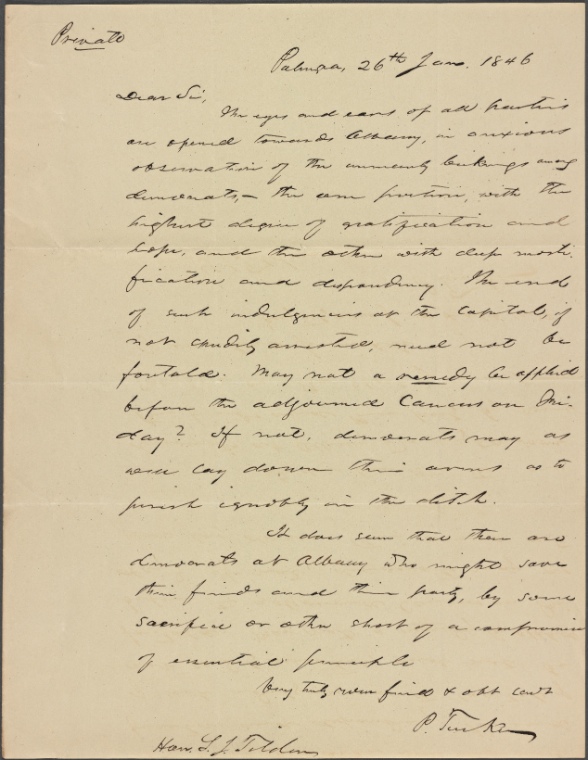 Private
Palmyra, 26th Jan. 1846
Dear Sir,
The eyes and ears of all parties
are opened towards Albany, in anxious
observation of the unmanly bickerings among
democrats – the one portion, with the
highest degree of gratification and
hope, and the other with deep morti-
fication and despondency. The end
of such indulgences at the Capitol, if
not speedily arrested, need not be
foretold. May not a remedy be applied
before the adjourned Caucus on Fri-
day? If not, democrats may as
well lay down their arms as to
perish ignobly in the ditch.
It does seem that there are
democrats at Albany who might save
their friends and their party, by some
sacrifice or other short of a compromise
of essential principle
Very truly your friend & obt servt
P. Tucker
Hon. S. J. Tilden